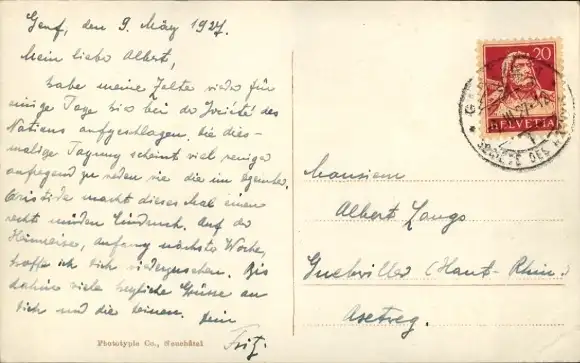 Genf, den 9. März 1927.
Mein lieber Albert,
habe meine Zelte wieder für
einige Tage hier bei der Société des
Nations aufgeschlagen. Die dies-
malige Tagung scheint viel weniger
aufregend zu werden wie die im
Aristide macht dieses Mal einen
recht müden Eindruck. Auf der
Heimreise, anfang nächste Woche,
hoffe ich dich wiederzusehen. Bis
dahin viele herzliche Grüsse an
dich und die deinen. Dein
Fritz.
Phototypie Co., Neuchâtel
20
HELVETIA
SOCIÉTÉ DES
Monsieur
Albert
(Haut-Rhin)